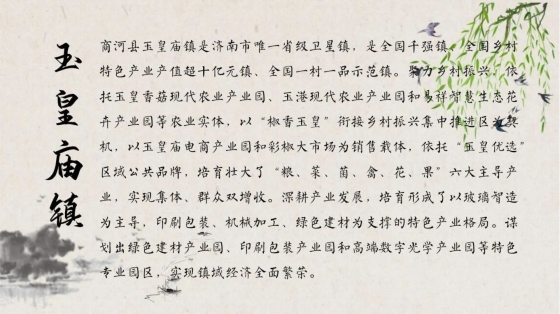 玉皇庙镇
商河县玉皇庙镇是济南市唯一省级卫星镇，是全国千强镇、全国乡村
特色产业产值超十亿元镇、全国一村一品示范镇。聚力乡村振兴，依
托玉皇香菇现代农业产业园、玉港现代农业产业园和易祥智慧生态花
卉产业园等农业实体，以“椒香玉皇”衔接乡村振兴集中推进区为契
机，以玉皇庙电商产业园和彩椒大市场为销售载体，依托“玉皇优选”
区域公共品牌，培育壮大了“粮、菜、菌、禽、花、果”六大主导产
业，实现集体、群众双增收。深耕产业发展，培育形成了以玻璃智造
为主导，印刷包装、机械加工、绿色建材为支撑的特色产业格局。谋
划出绿色建材产业园、印刷包装产业园和高端数字光学产业园等特色
专业园区，实现镇域经济全面繁荣。